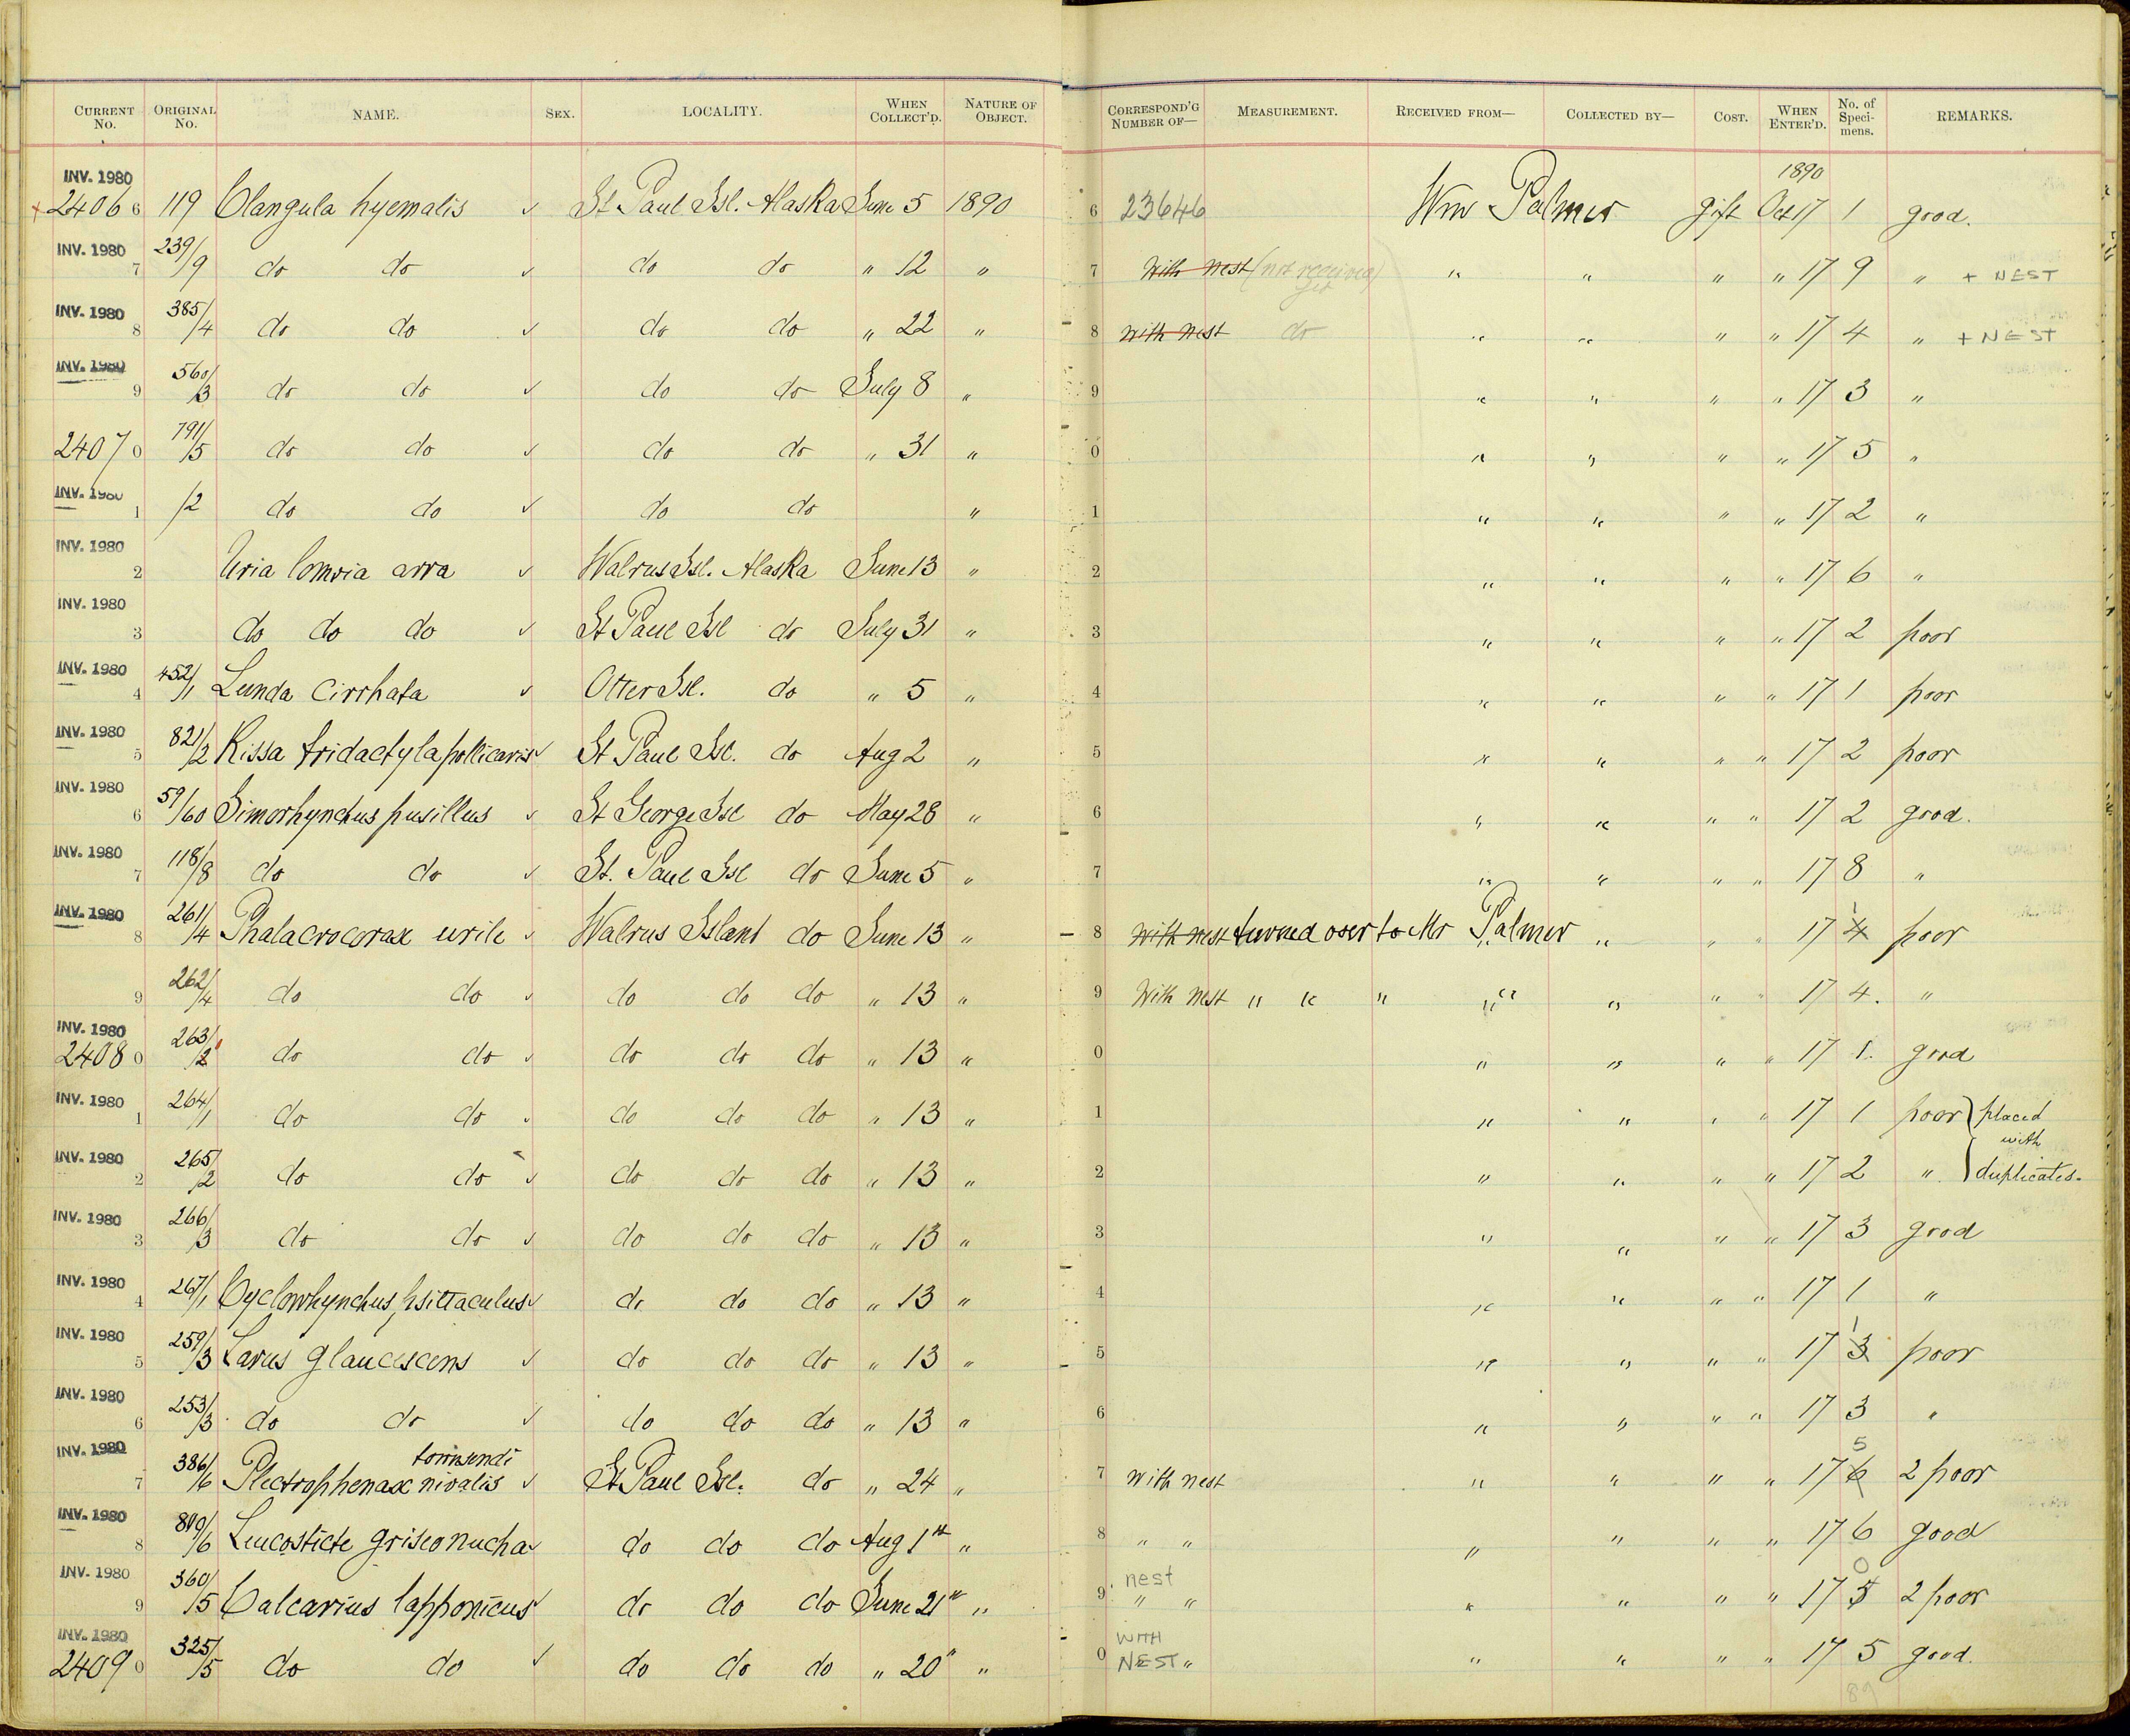 CURRENT No. ORIGINAL No. NAME. SEX. LOCALITY. WHEN COLLECT'D. NATURE OF OBJECT. CORRESPOND'G NUMBER OF— MEASUREMENT. RECEIVED FROM— COLLECTED BY— COST. WHEN ENTER'D. No. of Specimens. REMARKS.
INV. 1980 1890
2406 6 119 Clangula hyemalis ✓ St Paul Isl. Alaska June 5 1890 6 23646 Wm Palmer gift Oct 17 1 good.
INV. 1980 7 239/9 do do ✓ do do " 12 " 7 With nest (not received yet) " " " " 17 9 " + NEST
INV. 1980 8 385/4 do do ✓ do do " 22 " 8 With nest do " " " " 17 4 " + NEST
INV. 1980 9 560/3 do do ✓ do do July 8 " 9 " " " " 17 3 "
2407 0 791/5 do do ✓ do do " 31 " 0 " " " " 17 5 "
INV. 1980 1 /2 do do ✓ do do " 1 " " " " 17 2 "
INV. 1980 2 Uria lomvia arra ✓ Walrus Isl. Alaska June 13 " 2 " " " " 17 6 "
INV. 1980 3 do do do ✓ St Paul Isl do July 31 " 3 " " " " 17 2 poor
INV. 1980 4 452/1 Lunda cirrhata ✓ Otter Isl. do " 5 " 4 " " " " 17 1 poor
INV. 1980 5 821/2 Rissa tridactyla pollicaris ✓ St Paul Isl. do Aug 2 " 5 " " " " 17 2 poor
INV. 1980 6 59/60 Simorhynchus pusillus ✓ St George Isl do May 28 " 6 " " " " 17 2 good.
INV. 1980 7 118/8 do do ✓ St. Paul Isl do June 5 " 7 " " " " 17 8 "
INV. 1980 8 261/4 Phalacrocorax urile ✓ Walrus Island do June 13 " 8 With nest turned over to Mr Palmer " " " " 17 4 1 poor
9 262/4 do do ✓ do do do " 13 " 9 With nest " " " " " " " " 17 4. "
INV. 1980
2408 0 263/2 do do ✓ do do do " 13 " 0 " " " " 17 1. good
INV. 1980 1 264/1 do do ✓ do do do " 13 " 1 " " " " 17 1 poor } placed
with
INV. 1980 2 265/2 do do ✓ do do do " 13 " 2 " " " " 17 2 " } duplicates.
INV. 1980 3 266/3 do do ✓ do do do " 13 " 3 " " " " 17 3 good
INV. 1980 4 267/1 Cyclorrhynchus psittaculus ✓ do do do " 13 " 4 " " " " 17 1 "
INV. 1980 5 259/3 Larus glaucescens ✓ do do do " 13 " 5 " " " " 17 3 1 poor
INV. 1980 6 253/3 do do ✓ do do do " 13 " 6 " " " " 17 3 "
townsendi
INV. 1980 7 386/6 Plectrophenax nivalis ✓ St Paul Isl. do " 24 " 7 With nest " " " " 17 6 5 2 poor
INV. 1980 8 809/6 Leucosticte griseonucha ✓ do do do Aug 1st " 8 " " " " " " 17 6 good
INV. 1980 9 360/5 Calcarius lapponicus ✓ do do do June 21st " 9 nest " " " " " " 17 5 0 2 poor
INV. 1980 WITH
2409 0 325/5 do do ✓ do do do " 20" " 0 NEST " " " " " 17 5 good.
89